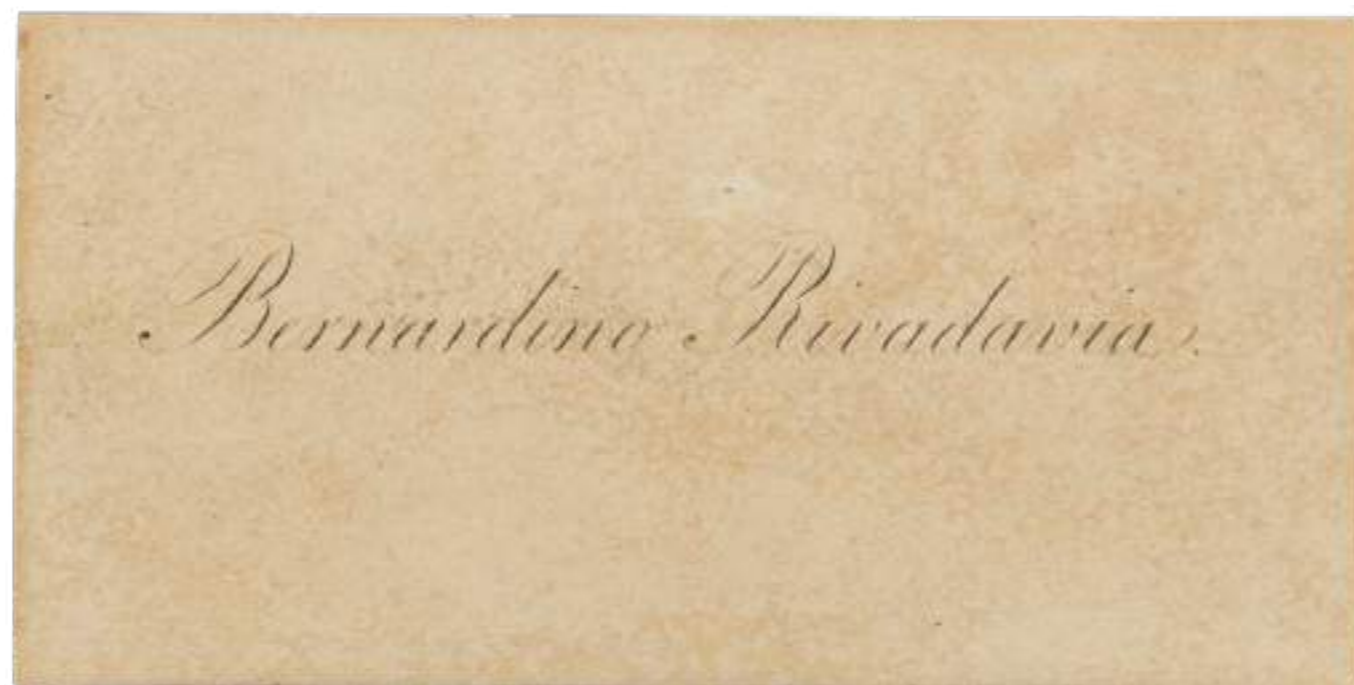 Bernardino Rivadavia.